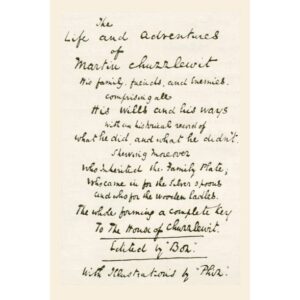 The
Life and Adventures
of
Martin Chuzzlewit
His family, friends, and Enemies.
comprising all
His Wills and his ways
with an historical record of
what he did, and what he didn't.
Shewing moreover
who inherited the Family Plate;
who came in for the Silver spoons
and who for the wooden Ladles.
The whole forming a complete key
To The House of Chuzzlewit.
Edited by "Boz."
With Illustrations by "Phiz."